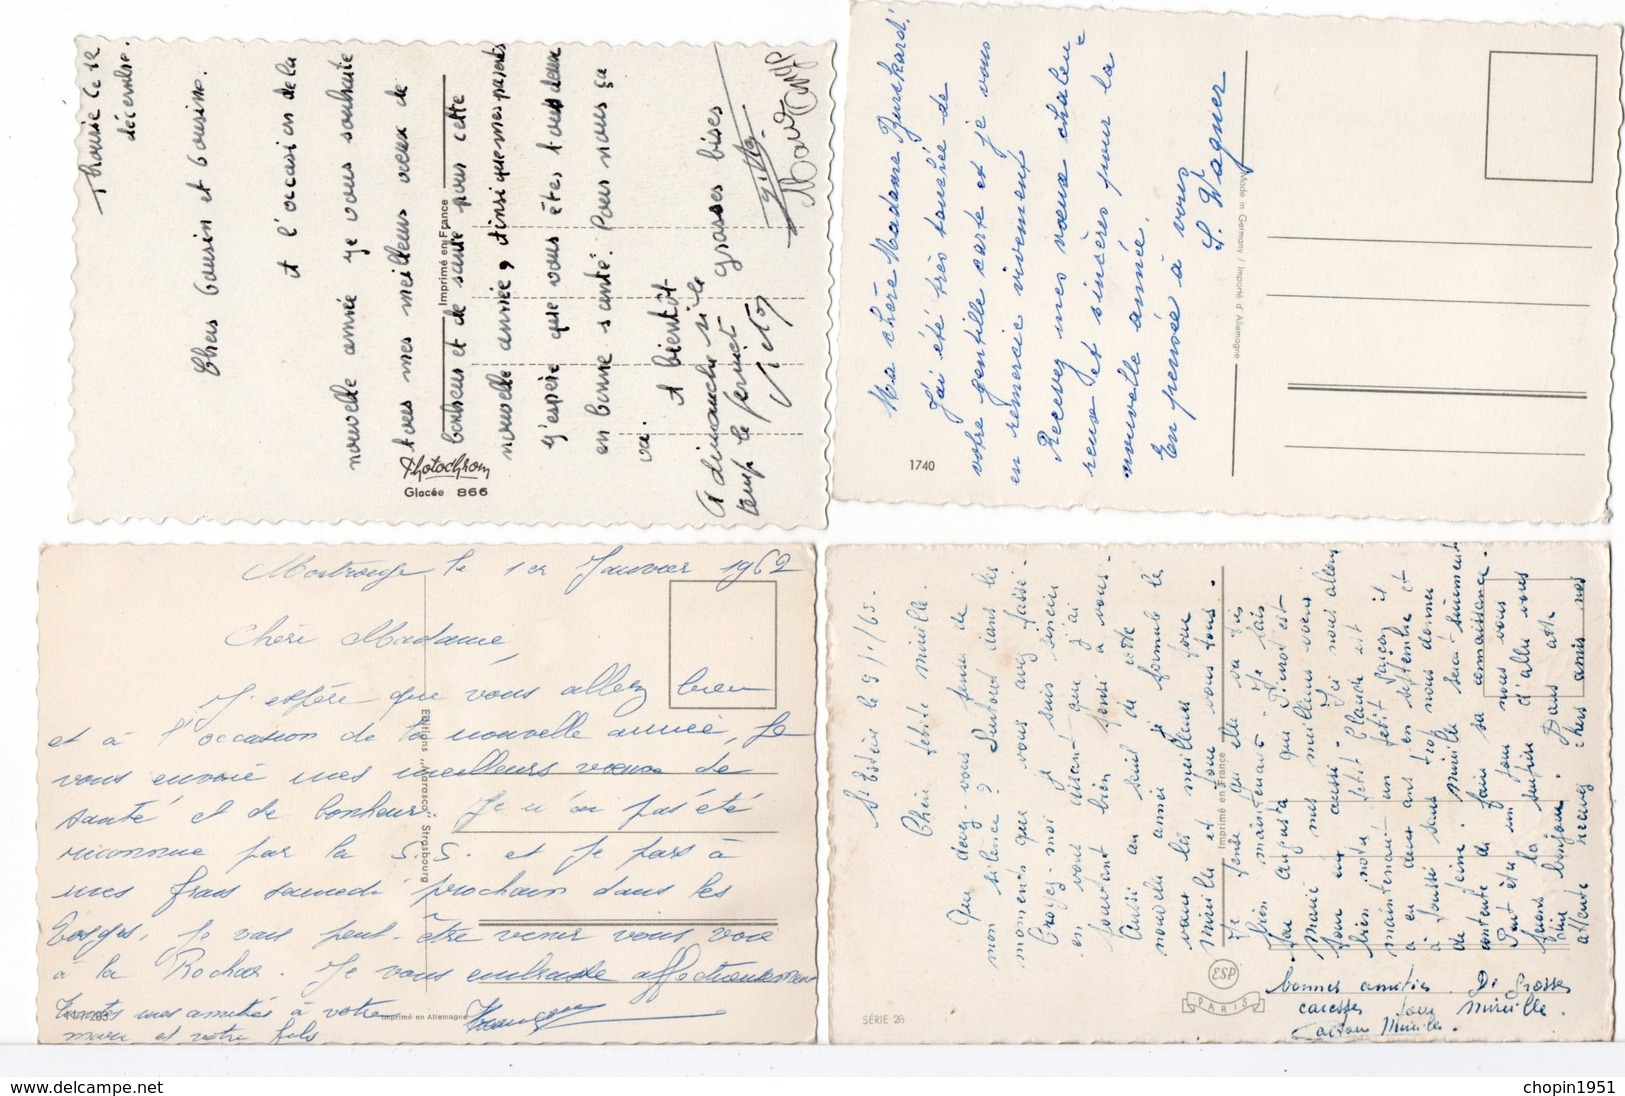 Thourie ce 12
décembre.
Chers Cousin et Cousine.
A l'occasion de la
nouvelle année je vous souhaite
tous mes meilleurs voeux de
bonheur et de santé pour cette
nouvelle année, Ainsi que mes parents
J'espère que vous êtes tous deux
en bonne santé. Pour nous ça
va.
A bientôt
grosses bises
A dimanche si le
temps le permet
Imprimé en France
Photochrom
Glacée 866
Ma chère Madame Burckardt!
J'ai été très touchée de
votre gentille carte et je vous
en remercie vivement
Recevez mes voeux chaleu-
reux et sincères pour la
nouvelle année.
En pensée à vous
S. Wagner
1740
Made in Germany / Importé d'Allemagne
Montrouge le 1er Janvier 1962
Chère Madame,
J'espère que vous allez bien
et à l'occasion de la nouvelle année, Je
vous envoie mes meilleurs voeux de
santé et de bonheur. Je n'ai pas été
reconnue par la S.S. et je pars à
mes frais samedi prochain dans les
Vosges, Je vais peut-être venir vous voir
à la Rochas. Je vous embrasse affectueusement
Toutes mes amitiés à votre
mari et votre fils
Editions "Marasco" Strasbourg
111-203
Imprimé en Allemagne
St Estève le 9/1/65.
Chère petite Mireille.
Que devez-vous penser de
mon silence? Surtout dans les
moments que vous avez passé.
Croyez-moi je suis sincère
en vous disant que j'ai
pourtant bien pensé à vous.
Aussi au seuil de cette
nouvelle année je formule le
vœux les meilleurs pour
Mireille et pour vous tous.
Je pense qu'elle va très
bien maintenant. Je sais
par Augusta que
Marie mes meilleurs vœux
pour lui aussi. Ici nous allons
bien notre petit Claude est
maintenant un petit garçon il
a eu deux ans en septembre et
a toussé sans trop nous donner
de peine. Mireille serait sûrement
contente de faire sa connaissance.
Peut être un jour nous vous
ferons la surprise d'aller vous
dire bonjour. Dans cette
attente recevez chers amis nos
bonnes amitiés. De grosses
caresses pour Mireille.
Gaston Mireille.
Imprimé en France
ESP
PARIS
SÉRIE 26
www.delcampe.net
chopin1951